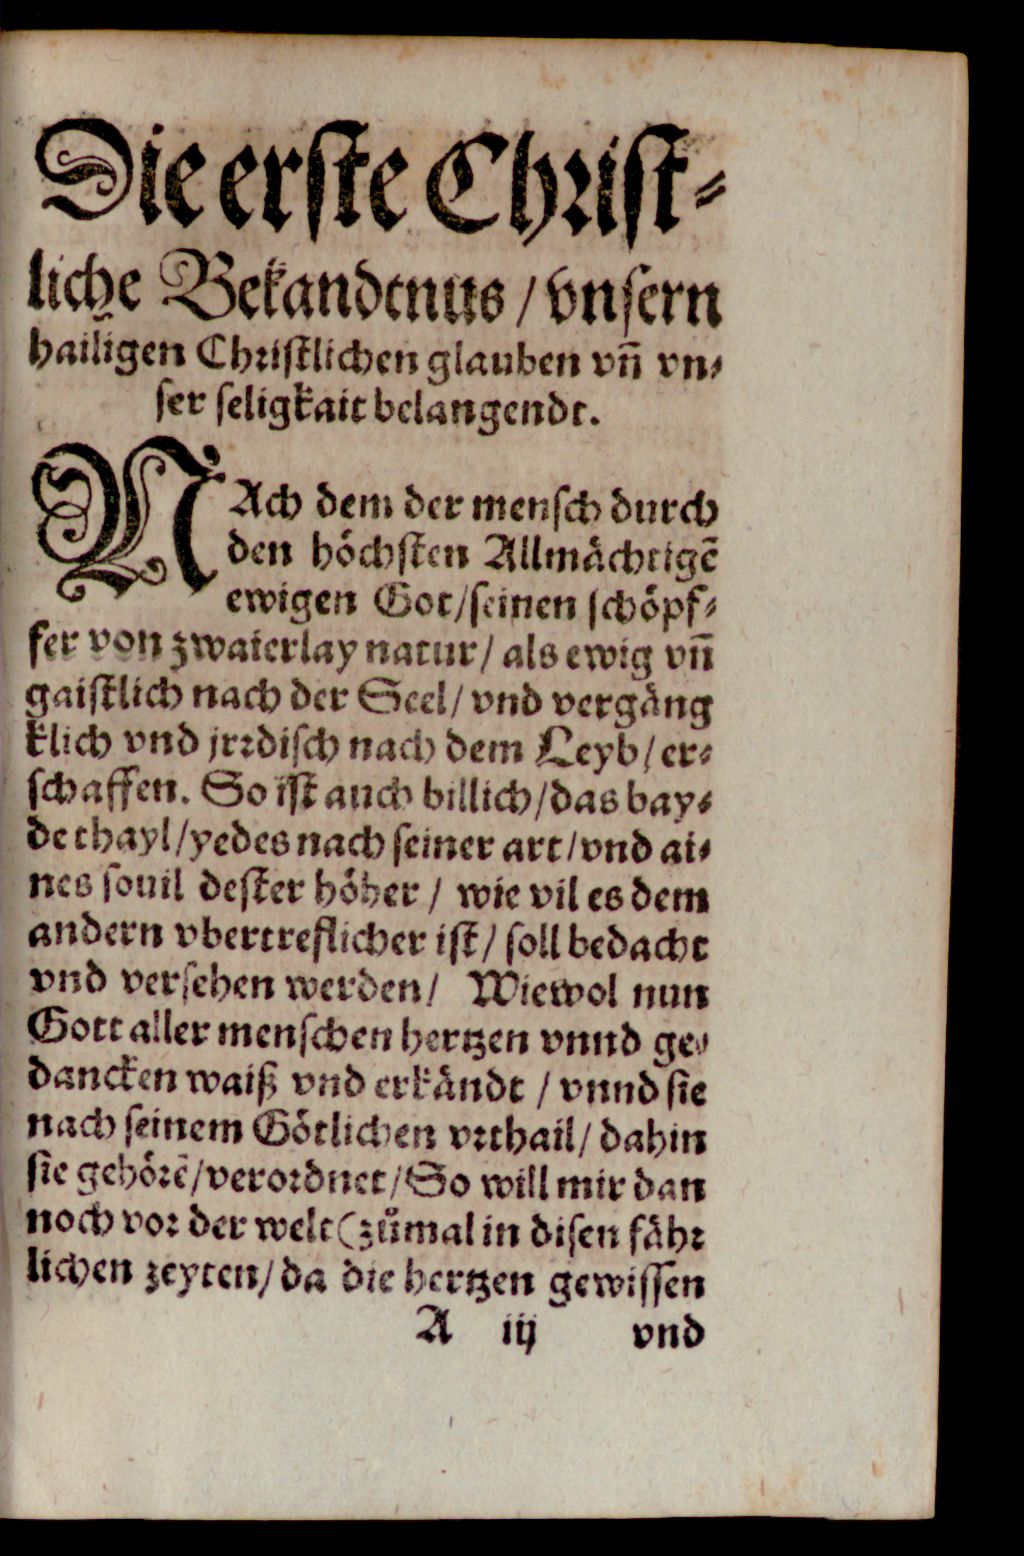 Die erste Christ⸗
liche Bekandtnus / vnsern
hailigen Christlichen glauben vn̄ vn⸗
ser seligkait belangendt.
NAch dem der mensch durch
den höchsten Allmächtigē
ewigen Got/seinen schöpf⸗
fer von zwaierlay natur/ als ewig vn̄
gaistlich nach der Seel/ vnd vergäng
klich vnd jrrdisch nach dem Leyb/ er⸗
schaffen. So ist auch billich/das bay⸗
de thayl/yedes nach seiner art/vnd ai⸗
nes souil dester höher / wie vil es dem
andern vbertreflicher ist/ soll bedacht
vnd versehen werden/ Wiewol nun
Gott aller menschen hertzen vnnd ge⸗
dancken waiß vnd erkändt / vnnd sie
nach seinem Götlichen vrthail/ dahin
sie gehörē/verordnet/So will mir dan
noch vor der welt (zůmal in disen fähr
lichen zeyten/da die hertzen gewissen
A iij vnd